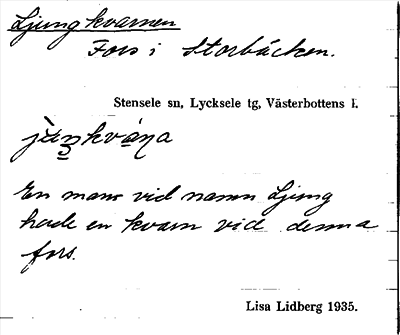 Ljungkvarnen
Fors i Storbäcken.
Stensele sn, Lycksele tg, Västerbottens l.
En man vid namn Ljung
hade en kvarn vid denna
fors.
Lisa Lidberg 1935.